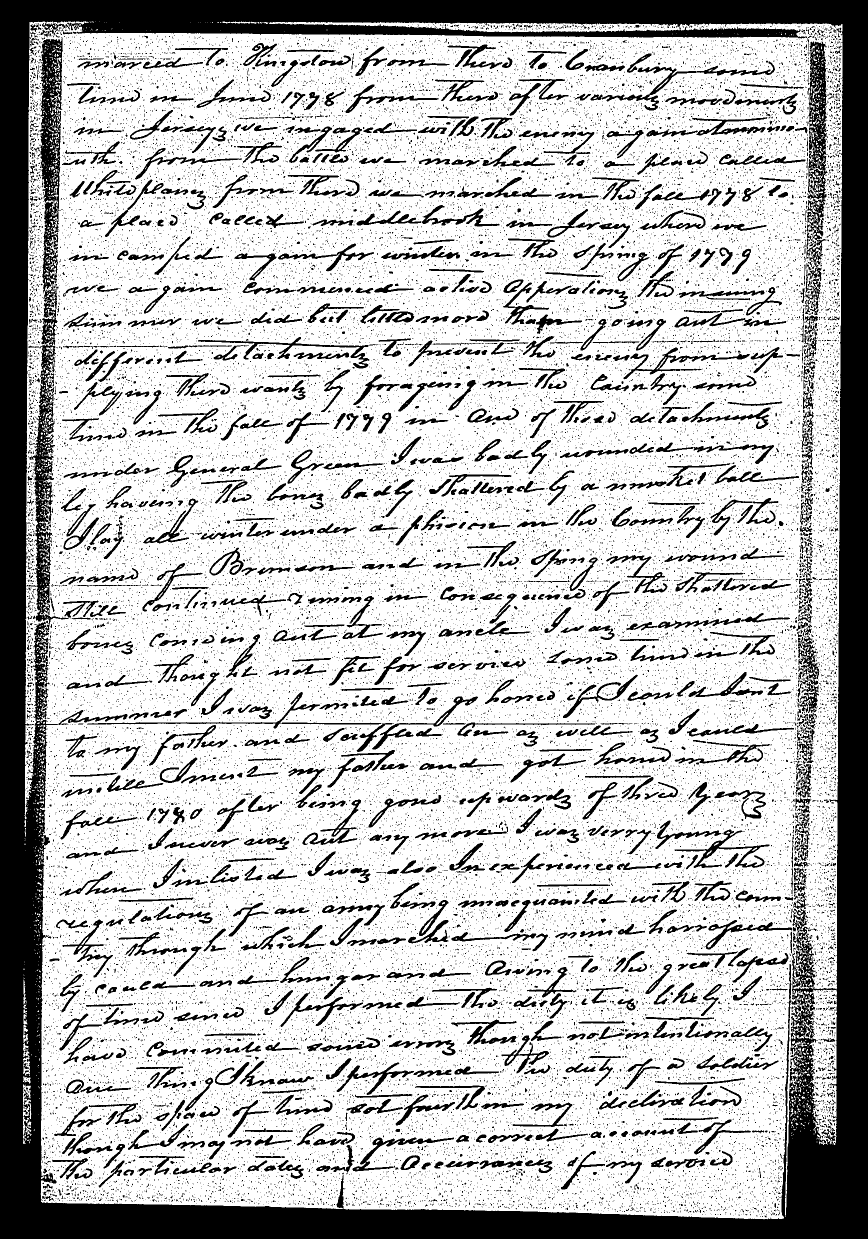 marced to Kingston from there to Cranbury some
time in June 1778 from there after various movements
in Jerseys we ingaged with the enemy again at monmo-
-uth. from the battle we marched to a place called
Whiteplains from there we marched in the fall 1778 to
a place called middlebrook in Jersey where we
in camped again for winter in the spring of 1779
we again commenced active opperations the insuing
summer we did but little more than going out in
different detachments to prevent the enemy from sup-
-plying there wants by forageing in the Country some
time in the fall of 1779 in one of those detachments
under General Green I was badly wounded in my
leg haveing the bones badly shattered by a musket ball
I lay all winter under a phision in the Country by the
name of Brunson and in the Spring my wound
still continued runing in consequence of the shattered
bones comeing out at my ancle I was examined
and thought not fit for service some time in the
summer I was permited to go home if I could I sent
to my father and scuffled on as well as I could
untill I ment my father and got home in the
fall 1780 after being gone upwards of three years
and I never was out any more I was verry young
when I inlisted I was also Inexperienced with the
regulations of an army being unacquainted with the coun-
-try through which I marched my mind harrassed
by could and hungar and owing to the great lapse
of time since I performed the duty it is likely I
have commited some errors though not intentionally
one thing I know I performed the duty of a soldier
for the space of time sot fourth in my declaration
though I may not have given a correct account of
the particular dates and occurrances of my service